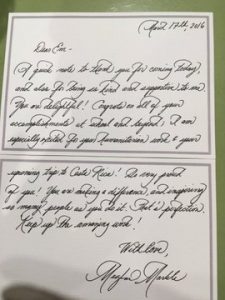 April 17th, 2016
Dear Em-
A quick note to thank you for coming today,
and also for being so kind and supportive to me.
You are delightful! Congrats on all of your
accomplishments at school and beyond! I am
especially excited for your humanitarian work & your
upcoming trip to Costa Rica! So very proud
of you! You are making a difference, and inspiring
so many people as you do it. That's perfection.
Keep up the amazing work!
With love,
Meghan Markle